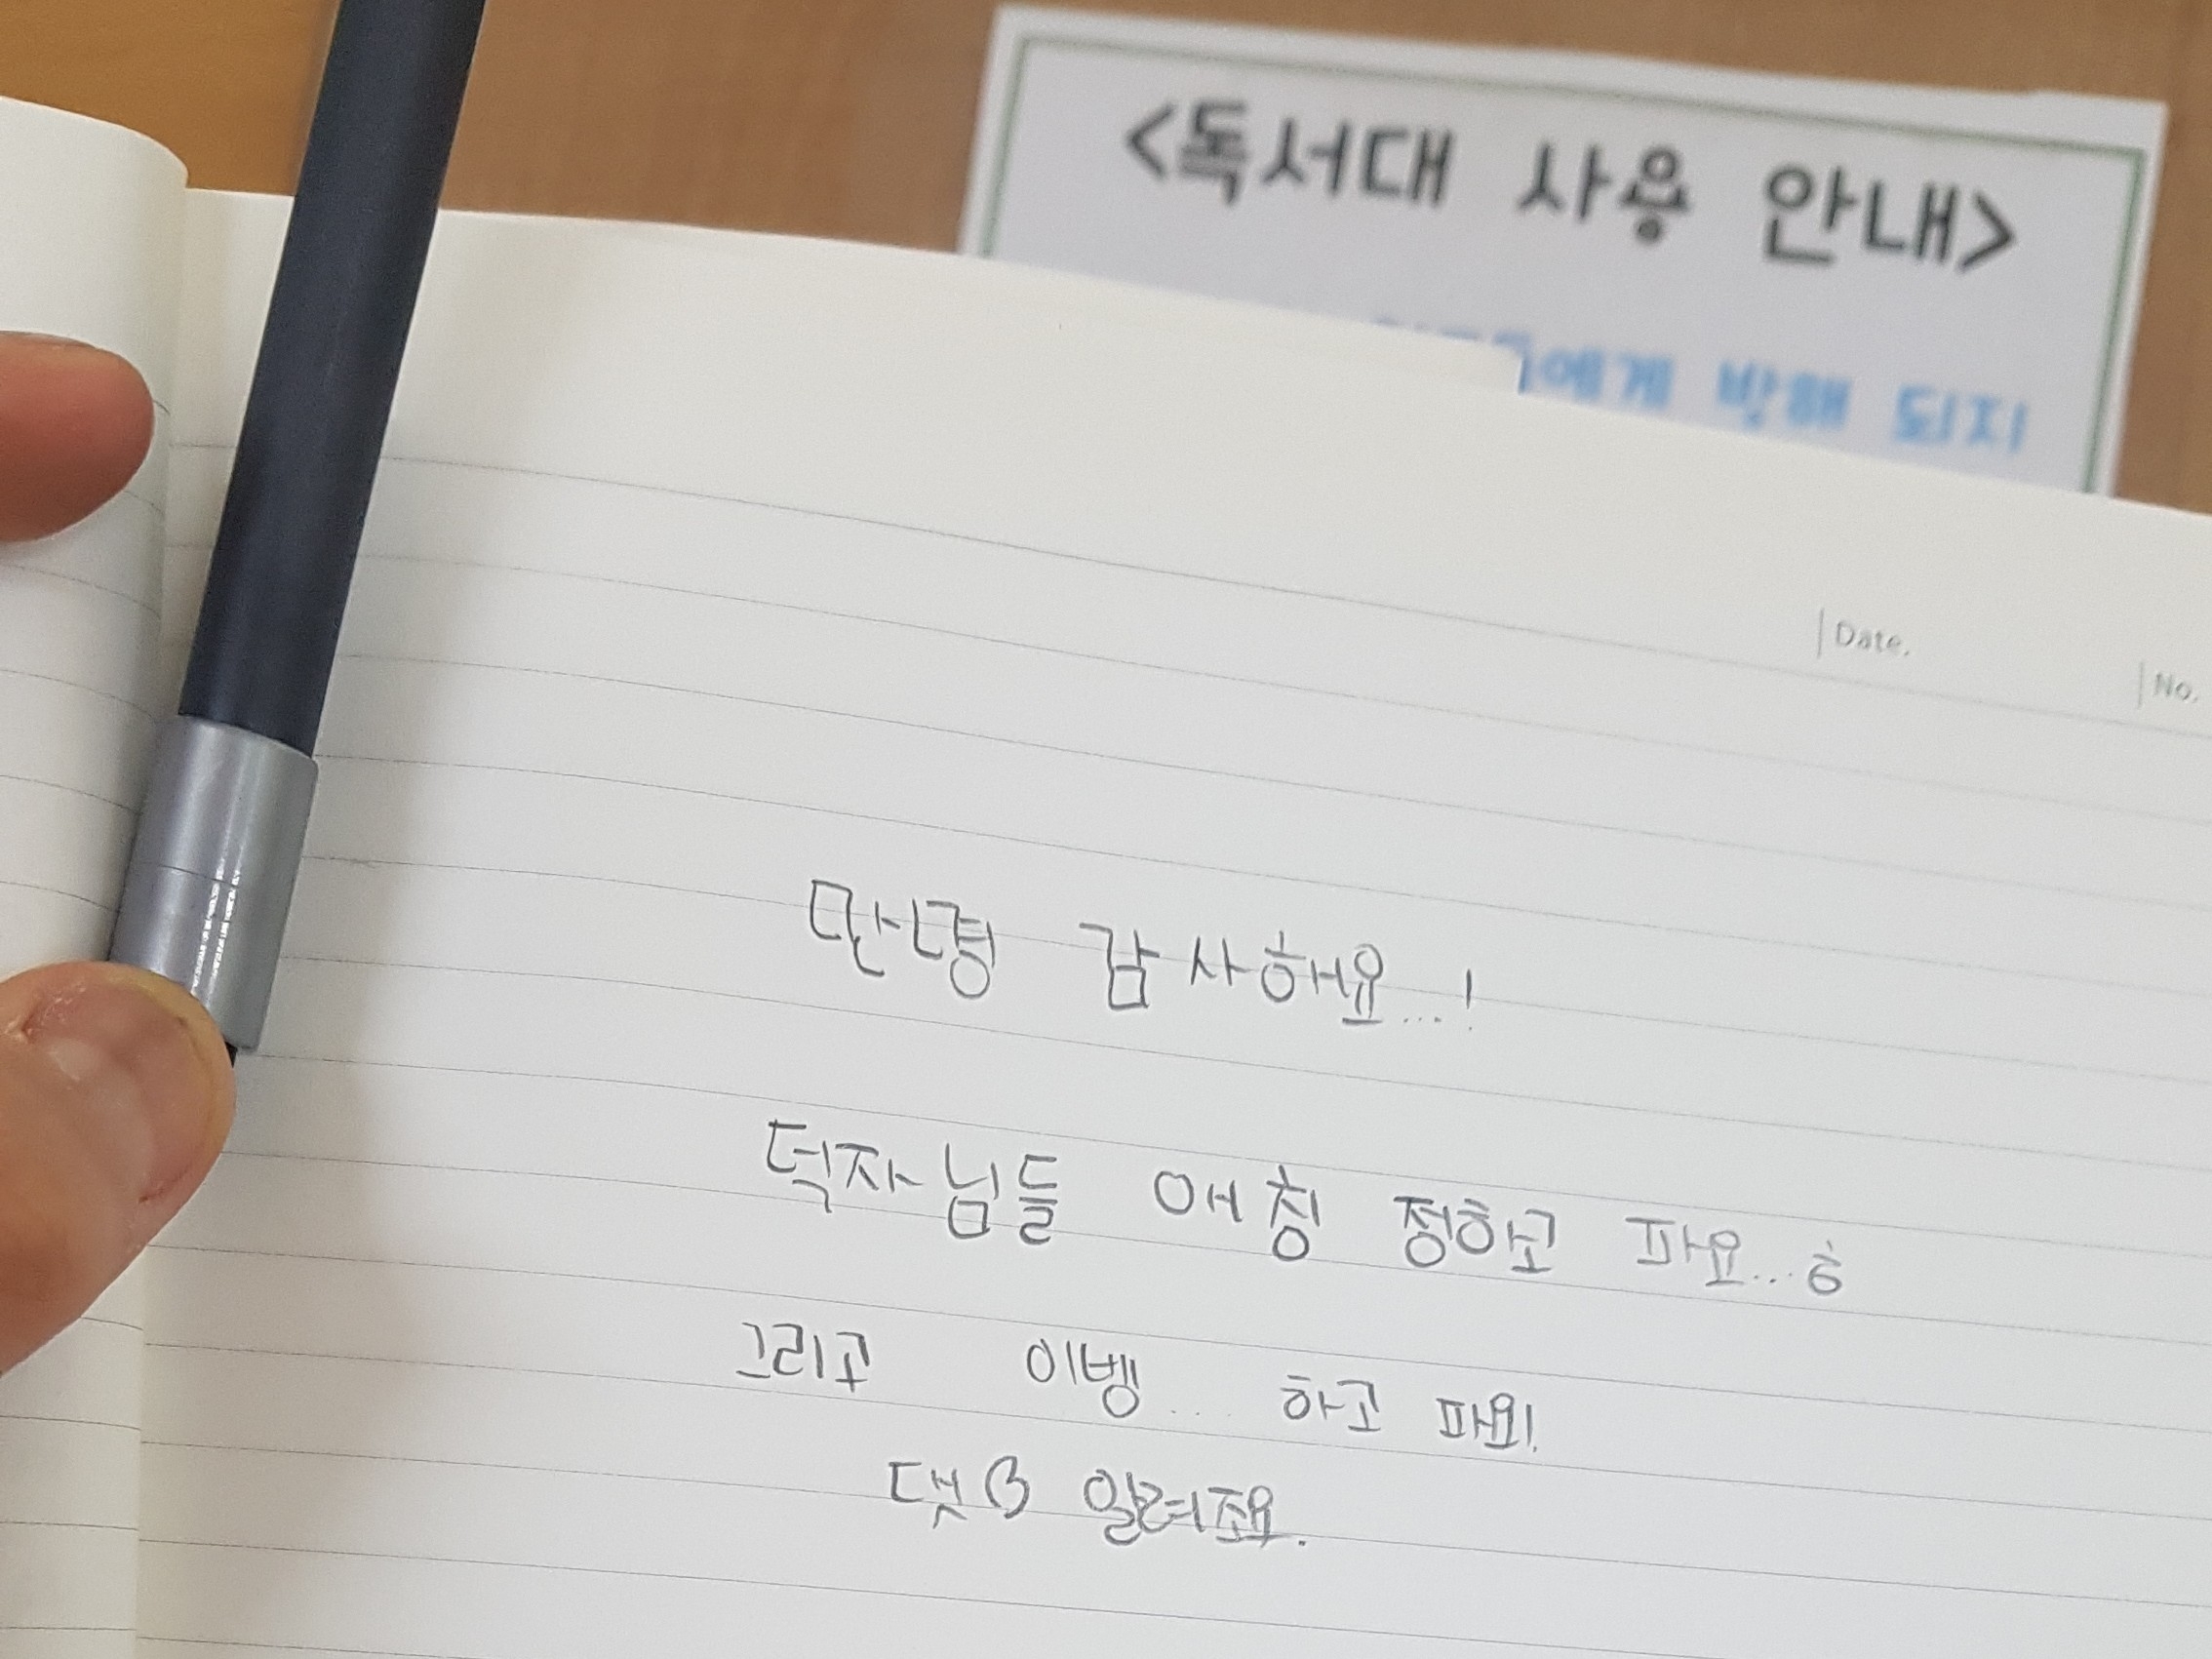 <독서대 사용 안내>
에게 방해 되지
Date.
No.
딴령 감사해요...!
덕자님들 애칭 정하고 파요...ㅎ
그리고 이벵... 하고 파요!
댓 알려줘요.